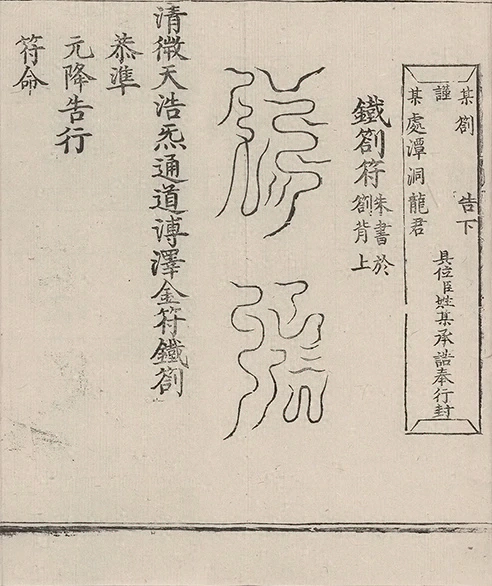 某劄　告下
謹
某處潭洞龍君
具位臣姓某承誥奉行封
鐵劄符
朱書於
劄背上
清微天浩炁通道溥澤金符鐵劄
恭準
元降告行
符命